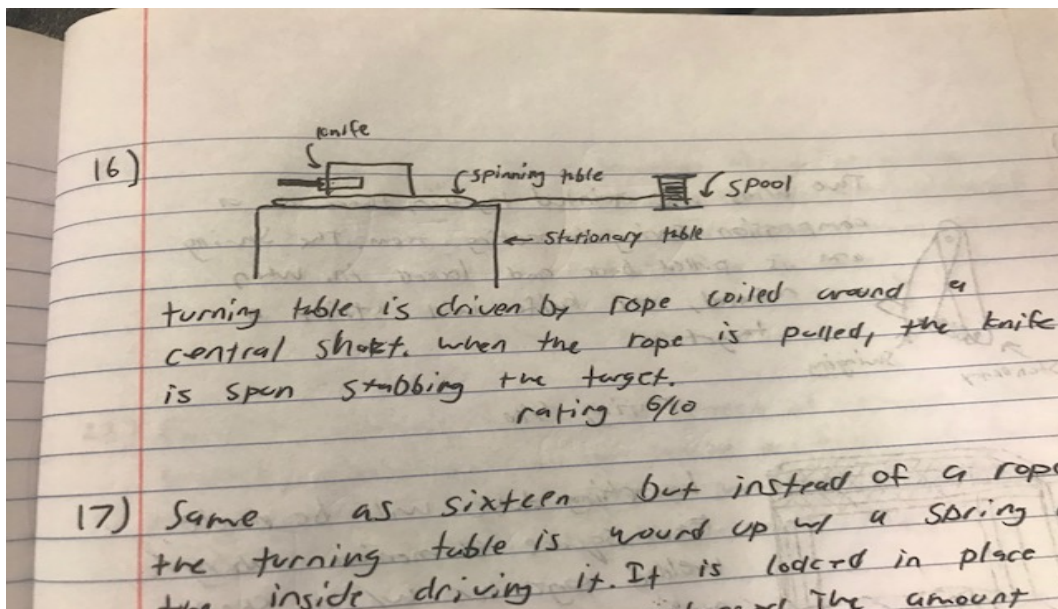 16)
knife
spinning table
spool
stationary table
turning table is driven by rope coiled around a
central shakt. when the rope is pulled, the knife
is spun stabbing the target.
rating 6/10
17) Same as sixteen but instead of a rope
the turning table is wound up w/ a spring
the inside driving it. It is locked in place
The amount